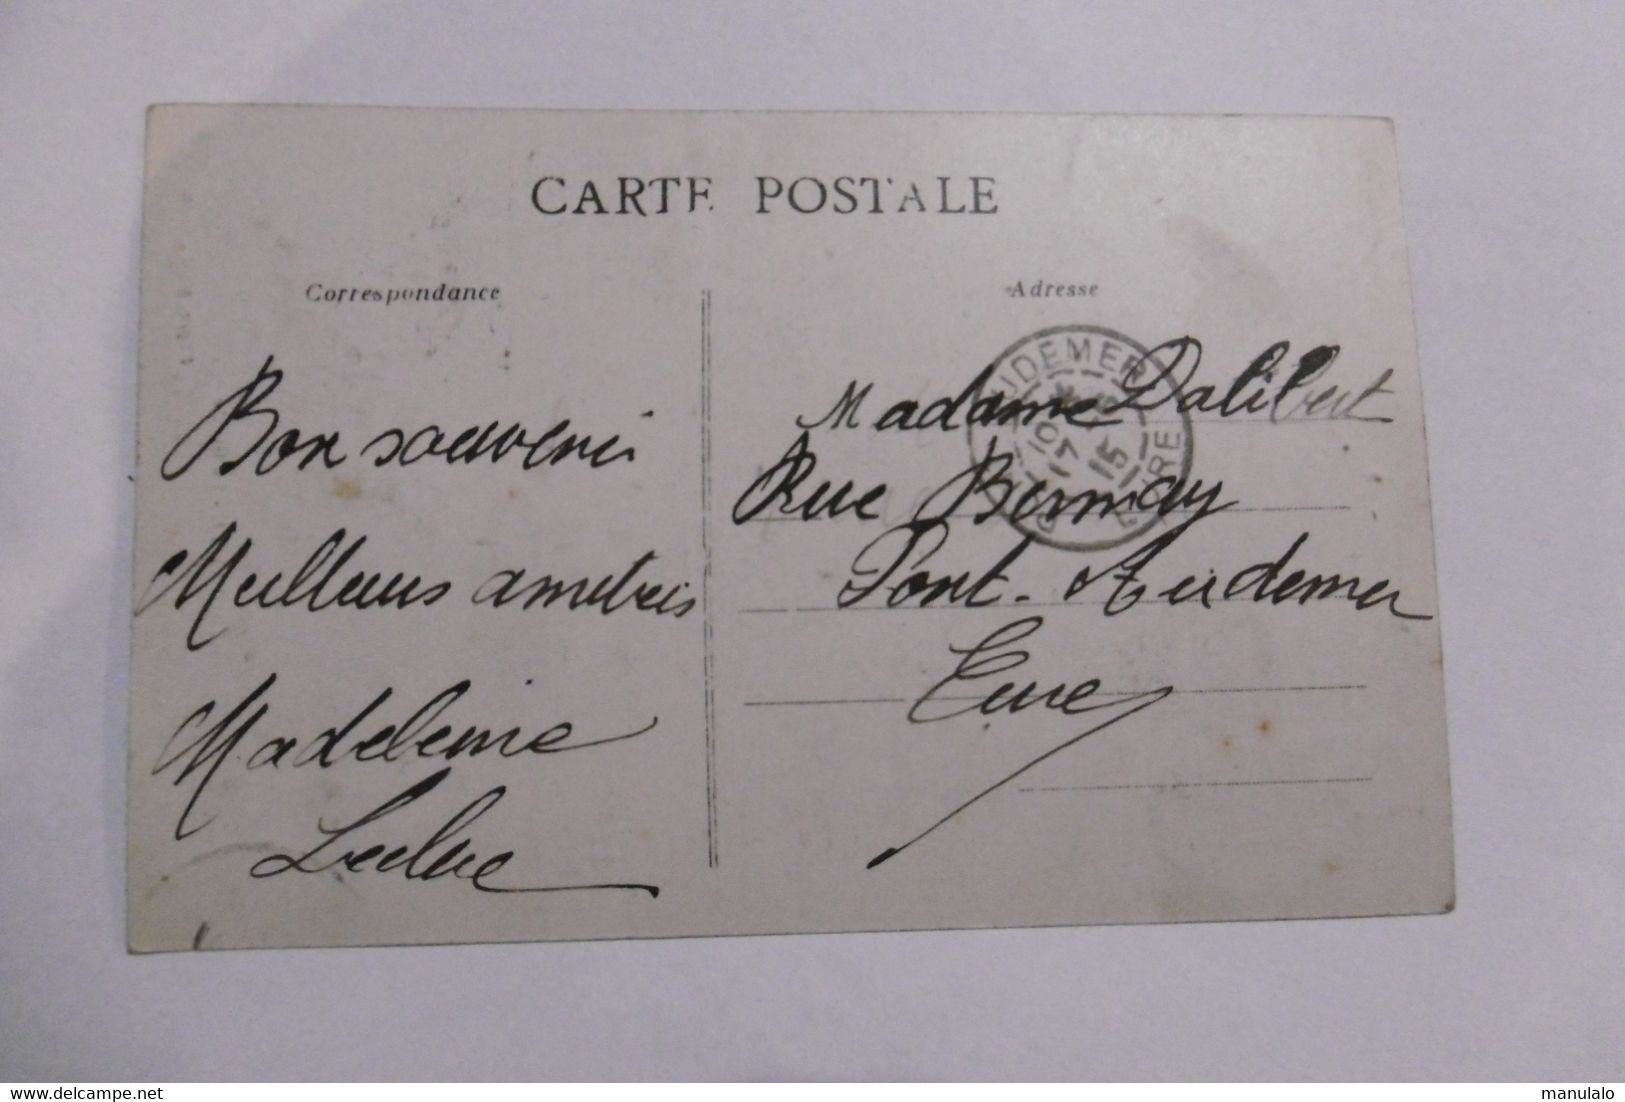 CARTE POSTALE
Correspondance
Adresse
Bon souvenir
Meilleurs amitiés
Madeleine
Leduc
Madame Dalibert
Rue Bernay
Pont-Audemer
Eure
UDEMER
10
17 15
EURE
delcampe.net
manulalo